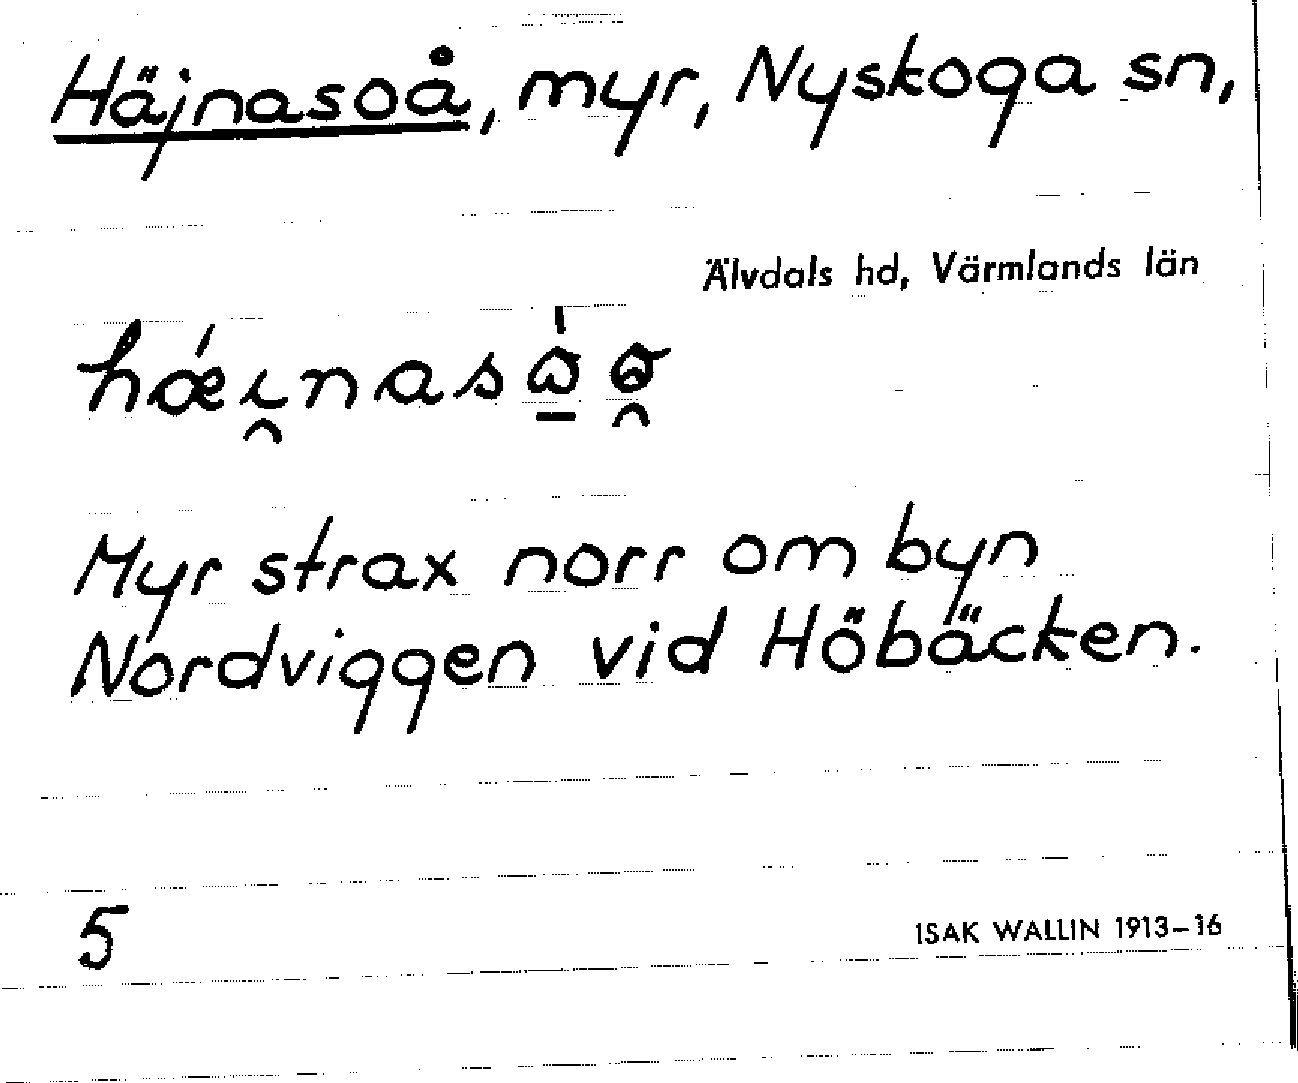 Häjnasoå, myr, Nyskoga sn,
Älvdals hd, Värmlands län
Myr strax norr om byn
Nordviggen vid Höbäcken.
5
ISAK WALLIN 1913-16